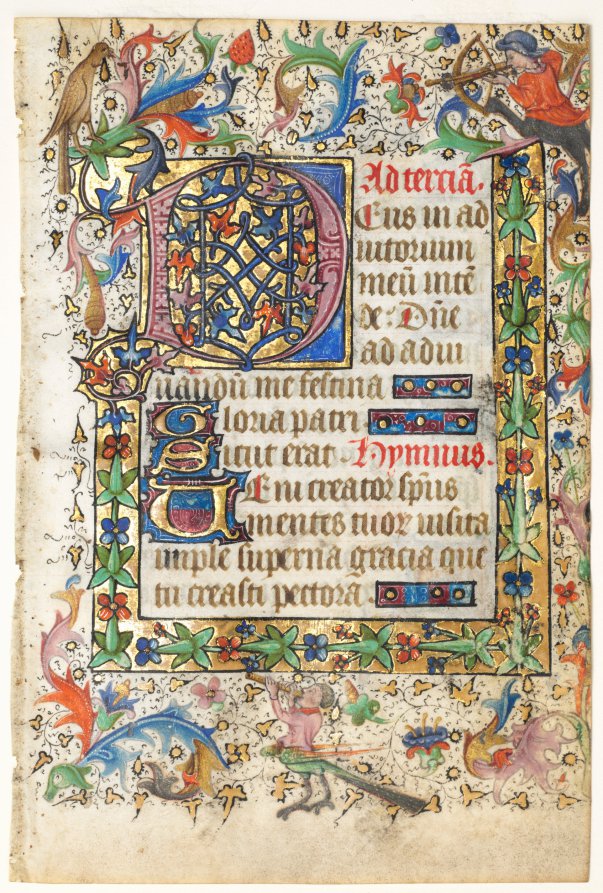 Ad terciā.
Deus in ad
iutorium
meū intē
de: Dn̄e
ad adiu
uandū me festina
Gloria patri
Sicut erat Hymnus.
Veni creator sp̄us
mentes tuoꝝ uisita
imple superna gracia que
tu creasti pectora